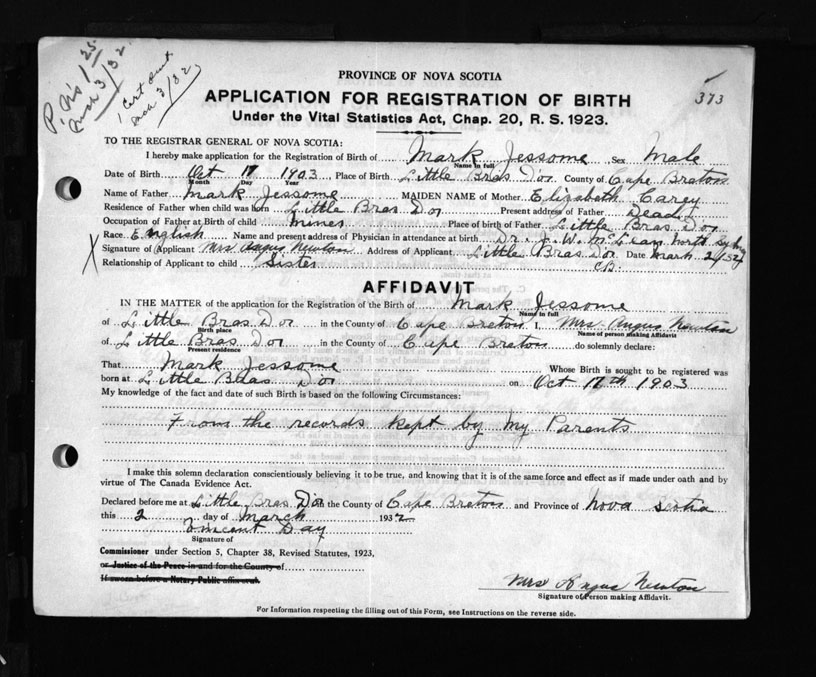 P. No 1 25
Mch 3/32
1 Cert sent
Mch 3/32
373
PROVINCE OF NOVA SCOTIA
APPLICATION FOR REGISTRATION OF BIRTH
Under the Vital Statistics Act, Chap. 20, R. S. 1923.
TO THE REGISTRAR GENERAL OF NOVA SCOTIA:
I hereby make application for the Registration of Birth of Mark Jessome Sex Male
Name in full
Date of Birth Oct 17 1903 Place of Birth Little Bras D'or County of Cape Breton
Month Day Year
Name of Father Mark Jessome MAIDEN NAME of Mother Elizabeth Carey
Residence of Father when child was born Little Bras Dor Present address of Father Dead
Occupation of Father at Birth of child miner Place of birth of Father Little Bras Dor
Race English Name and present address of Physician in attendance at birth Dr. J. W. McLean North Sydney
X Signature of Applicant Mrs Angus Newton Address of Applicant Little Bras Dor Date March 2/32
Relationship of Applicant to child Sister C.B.
AFFIDAVIT
IN THE MATTER of the application for the Registration of the Birth of Mark Jessome
Name in full
of Little Bras Dor in the County of Cape Breton I, Mrs Angus Newton
Birth place Name of person making Affidavit
of Little Bras Dor in the County of Cape Breton do solemnly declare:
Present residence
That Mark Jessome Whose Birth is sought to be registered was
born at Little Bras Dor on Oct 17th 1903
My knowledge of the fact and date of such Birth is based on the following Circumstances:
From the records kept by my Parents
I make this solemn declaration conscientiously believing it to be true, and knowing that it is of the same force and effect as if made under oath and by
virtue of The Canada Evidence Act.
Declared before me at Little Bras Dor in the County of Cape Breton and Province of Nova Scotia
this 2 day of March 1932
Vincent Day
Signature of
Commissioner under Section 5, Chapter 38, Revised Statutes, 1923,
or Justice of the Peace in and for the County of
If sworn before a Notary Public affix seal.
Mrs Angus Newton
Signature of Person making Affidavit.
For Information respecting the filling out of this Form, see Instructions on the reverse side.